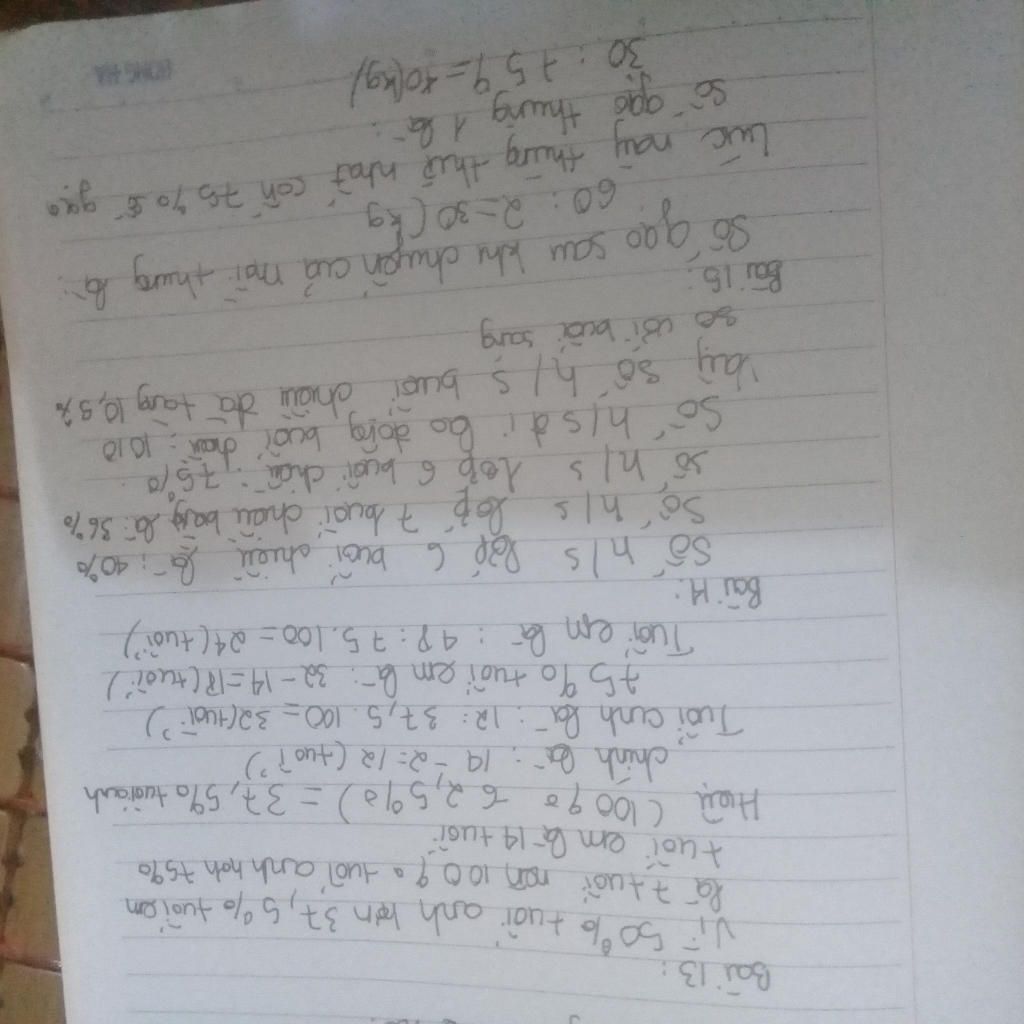 Bài 13:
Vì 50% tuổi anh hơn 37,5% tuổi em
là 7 tuổi nên 100% tuổi anh hơn 75%
tuổi em là 14 tuổi
Hiệu (100% - 62,5%) = 37,5% tuổi anh
chính là: 14 - 2 = 12 (tuổi)
Tuổi anh là: 12: 37,5.100 = 32 (tuổi)
75% tuổi em là: 32 - 14 = 18 (tuổi)
Tuổi em là: 18: 75.100 = 24 (tuổi)
Bài 14:
Số h/s lớp 6 buổi chiều là: 40%
Số h/s lớp 7 buổi chiều bằng là: 36%
Số h/s lớp 6 buổi chiều: 75%
Số h/s đi lao động buổi chiều: 1010
Vậy số h/s buổi chiều đã tăng 10,5%
so với buổi sáng
Bài 15:
Số gạo sau khi chuyển của mỗi thùng là:
60: 2=30 (kg
Lúc này thùng thứ nhất còn 75% số gạo
Số gạo thùng 1 là:
30: 75% = 40 (kg)
HONG HA